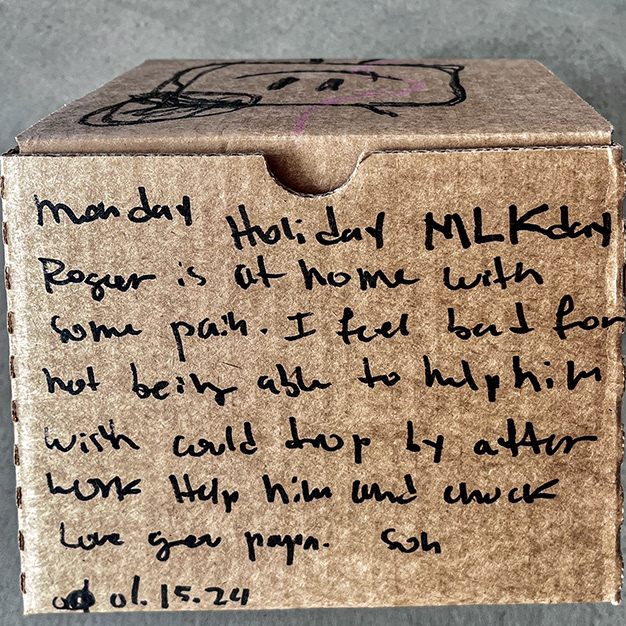 Monday Holiday MLK day
Roger is at home with
some pain. I feel bad for
not being able to help him
wish could drop by after
work Help him and chuck
Love you papa. Son
01.15.24